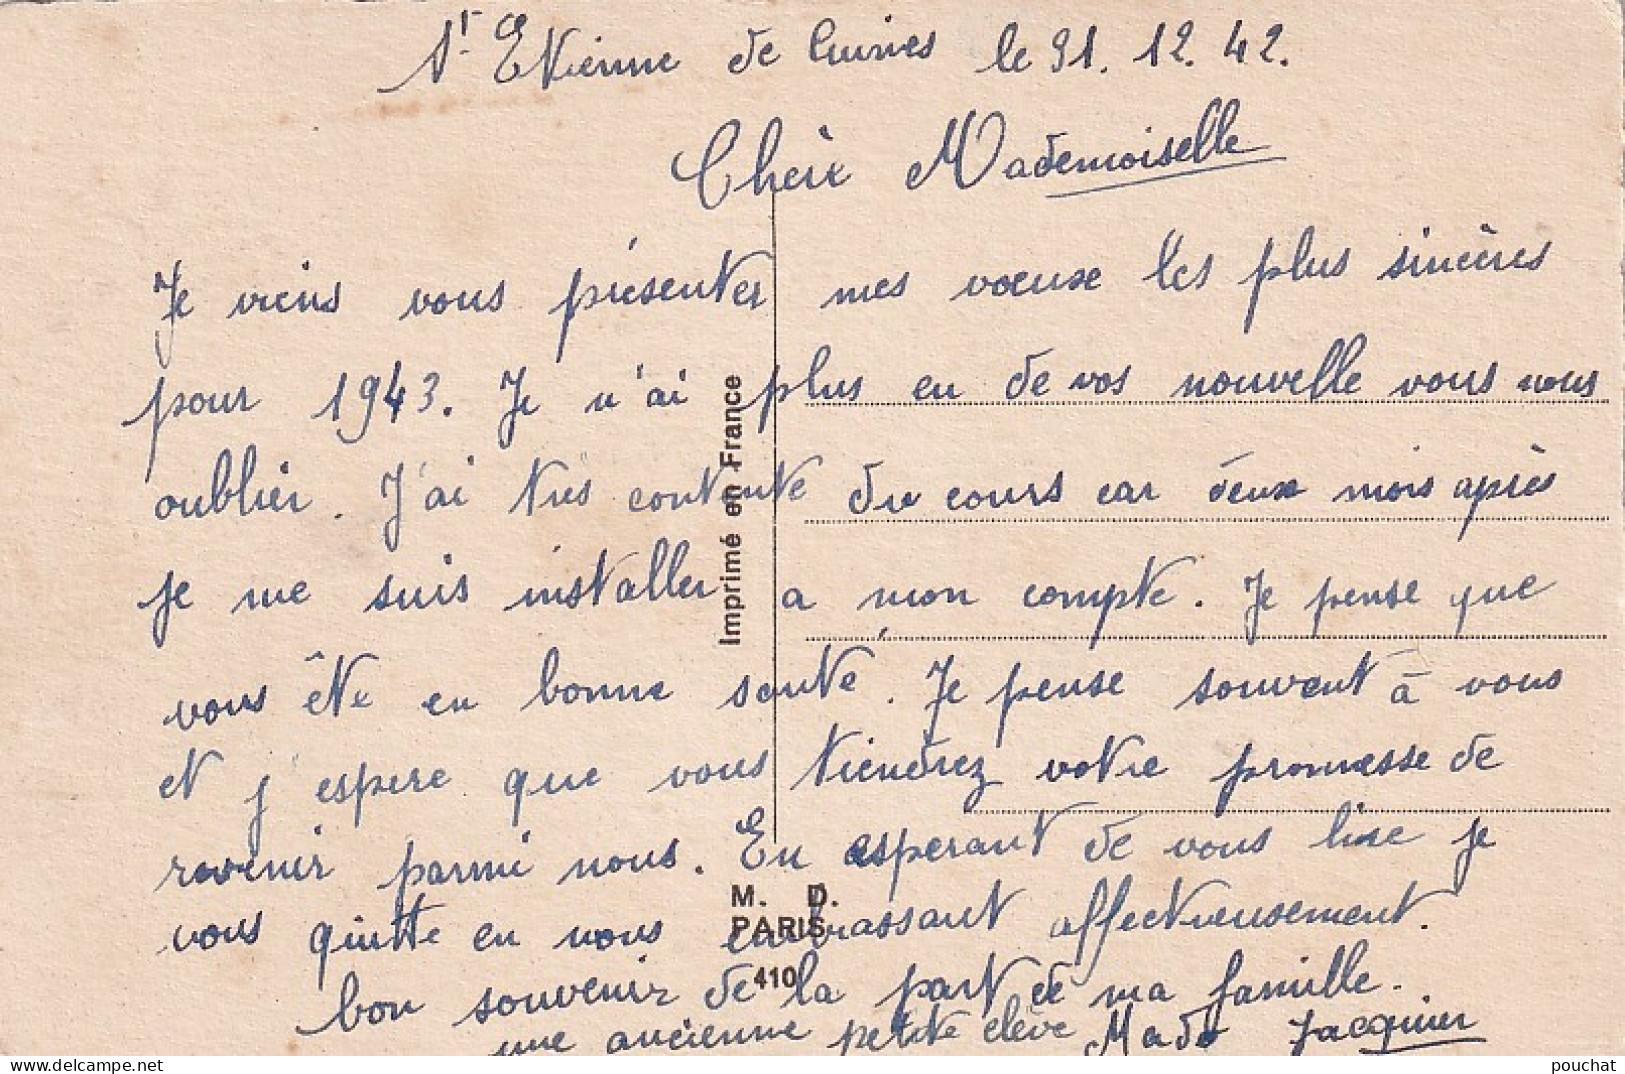 St Etienne de Cuines le 31. 12. 42.
Chère Mademoiselle
Je viens vous présenter mes voeuxe les plus sincères
pour 1943. Je n'ai plus eu de vos nouvelle vous nous
oublier. J'ai tres contente du cours car deux mois après
je me suis installer a mon compte. Je pense que
vous ête en bonne santé. Je pense souvent à vous
et j'espere que vous tiendrez votre promesse de
revenir parmi nous. En esperant de vous lire je
vous quitte en vous embrassant affectieusement.
bon souvenir de la part de ma famille.
une ancienne petite elève Mado Jacquier
Imprimé en France
M. D.
PARIS
410
pouchat